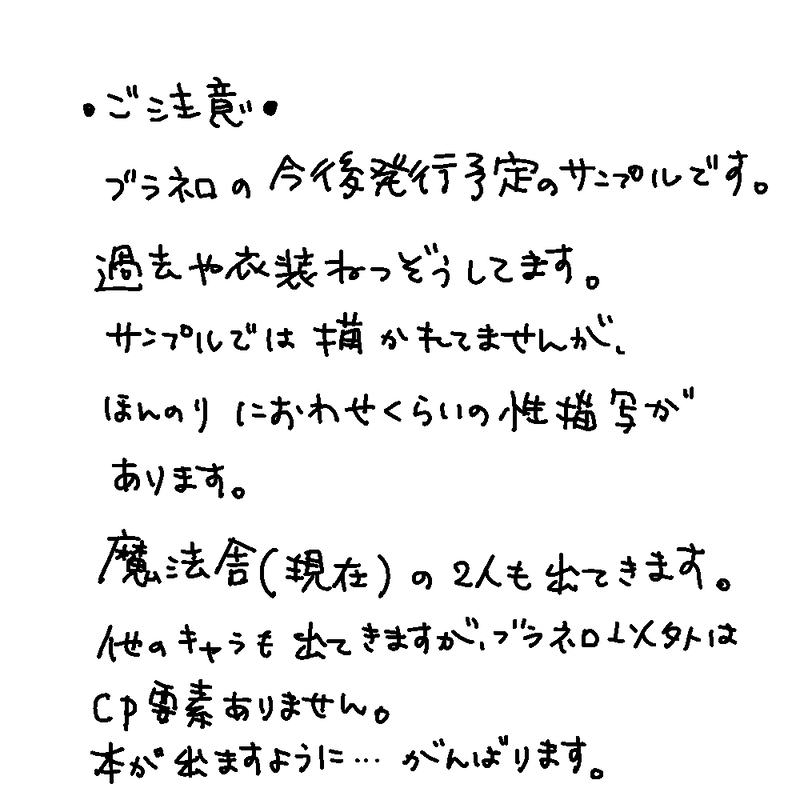 ・ご注意・
ブラネロの今後発行予定のサンプルです。
過去や衣装ねつぞうしてます。
サンプルでは描かれてませんが、
ほんのりにおわせくらいの性描写が
あります。
魔法舎(現在)の2人も出てきます。
他のキャラも出てきますが、ブラネロ以外は
CP要素ありません。
本が出ますように…がんばります。